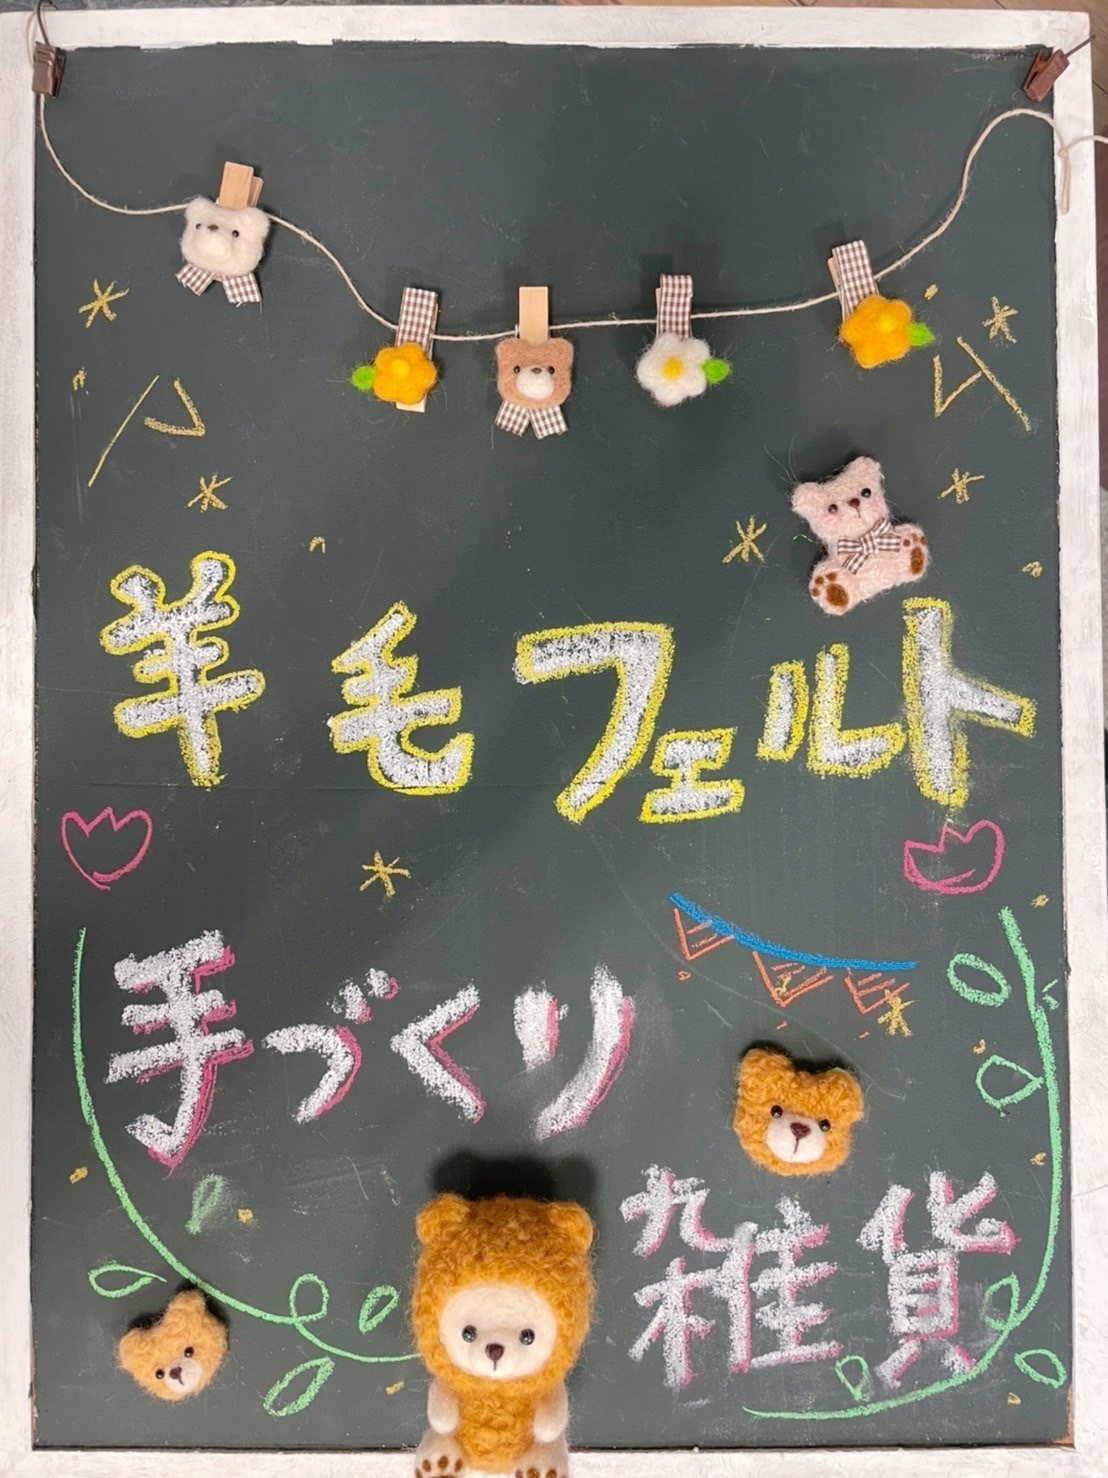 羊毛フェルト
手づくり
雑貨